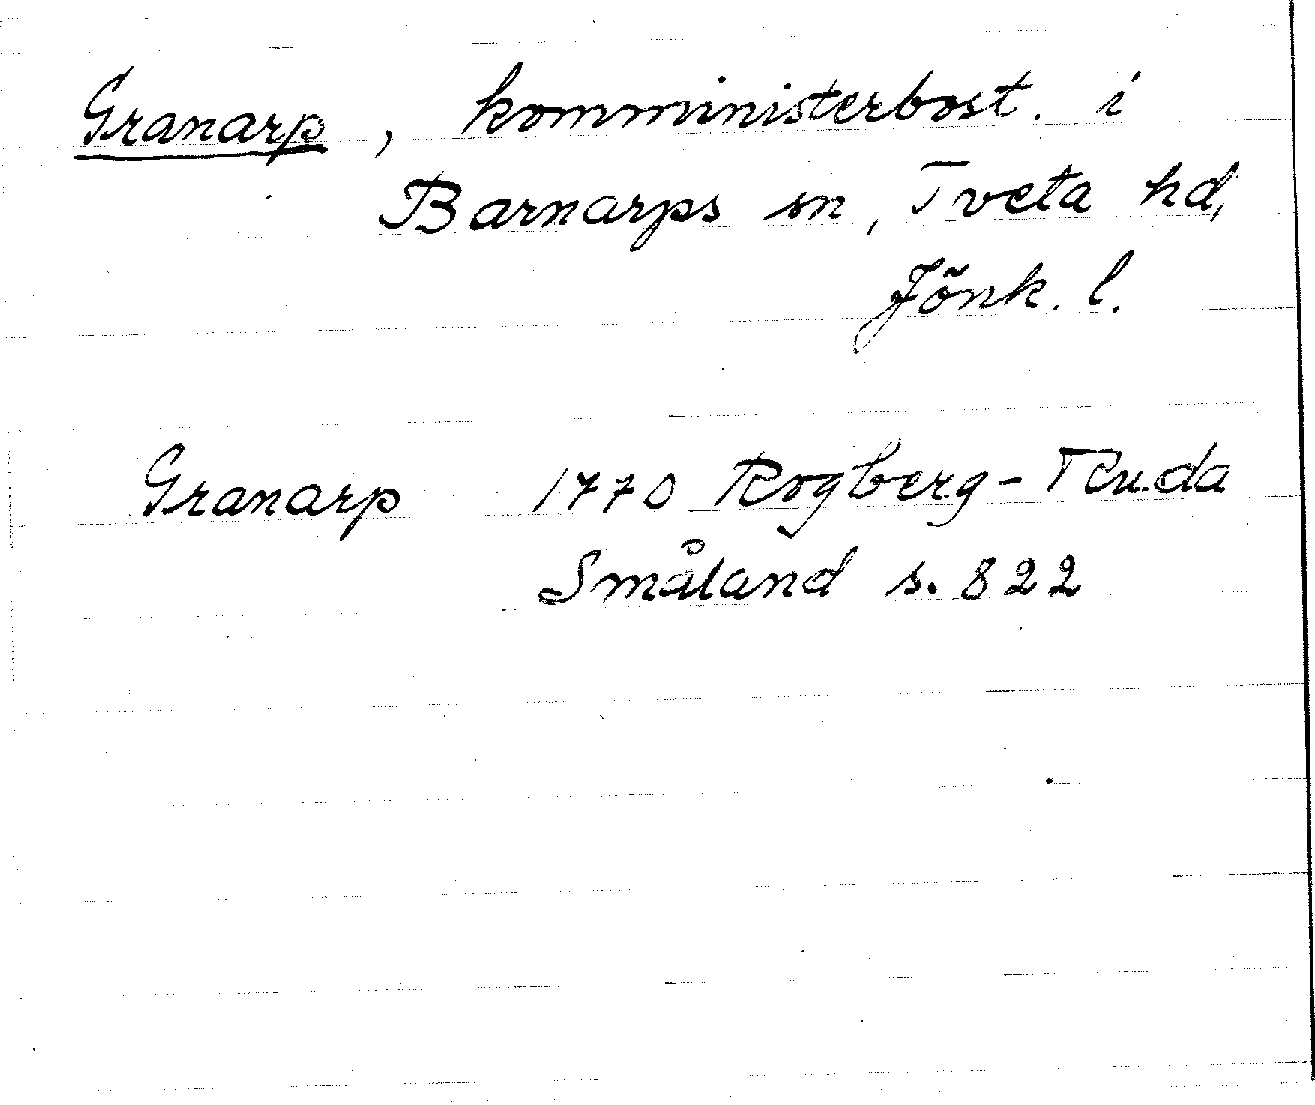 Granarp, komministerbost. i
Barnarps sn, Tveta hd,
Jönk. l.
Granarp 1770 Rogberg-Ruda
Småland s. 822